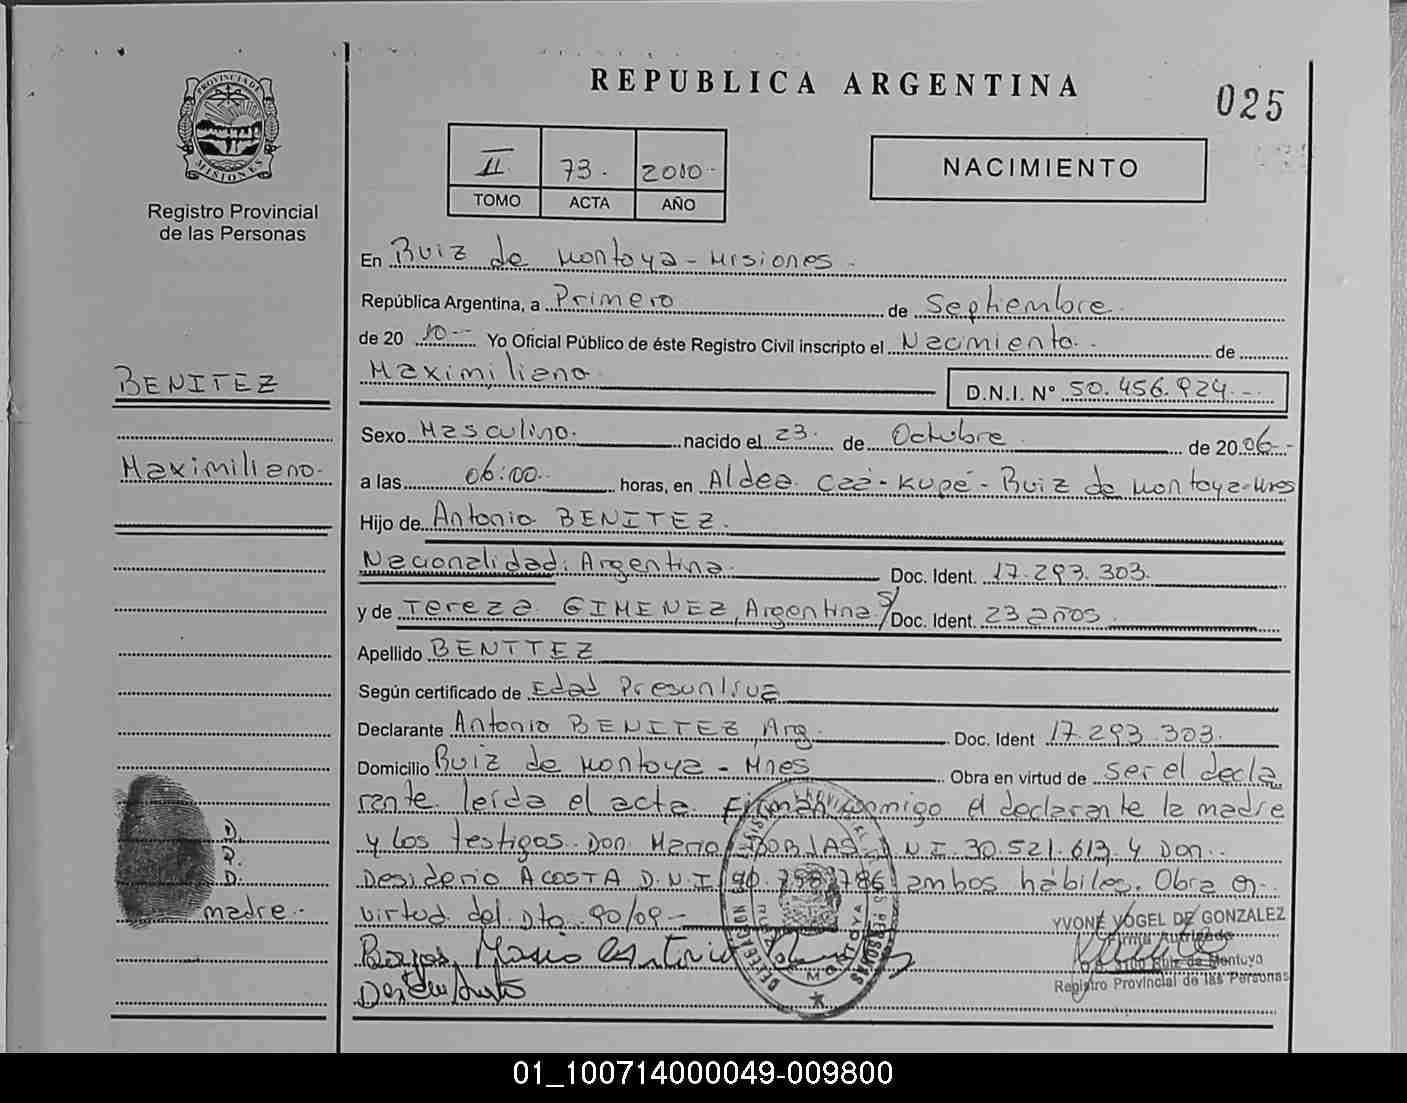 REPUBLICA ARGENTINA
025
PROVINCIA DE
MISIONES
Registro Provincial
de las Personas
II 73. 2010-
TOMO ACTA AÑO
NACIMIENTO
En Ruiz de Montoya - Misiones -
República Argentina, a Primero de Septiembre.
de 20 10-- Yo Oficial Público de éste Registro Civil inscripto el Nacimiento. - de
Maximiliano D.N.I. N° 50.456.924.--
BENITEZ
Maximiliano.
Sexo Masculino. nacido el 23. de Octubre de 20 06-.
a las 06:00 horas, en Aldea Caá-Kupé - Ruiz de Montoya-Mnes
Hijo de Antonio BENITEZ.
Nacionalidad: Argentina. Doc. Ident. 17.293.303.
y de Tereza GIMENEZ, Argentina s/ Doc. Ident. 23 años
Apellido BENITEZ
Según certificado de Edad Presuntiva
Declarante Antonio BENITEZ, Arg. Doc. Ident 17.293.303.
Domicilio Ruiz de Montoya - Mnes Obra en virtud de ser el decla
rante leída el acta Firman conmigo el declarante la madre
y los testigos Don Mario BORJAS D.N.I 30.521.613 y Don
Desiderio ACOSTA D.N.I 90.798.786 ambos hábiles. Obra en
virtud del Dto 90/09-
D.
R.
D.
madre.
Borjas Mario Antonio
YVONE VOGEL DE GONZALEZ
Firma Autorizada
Ruiz de Montoya
Registro Provincial de las Personas
01_100714000049-009800